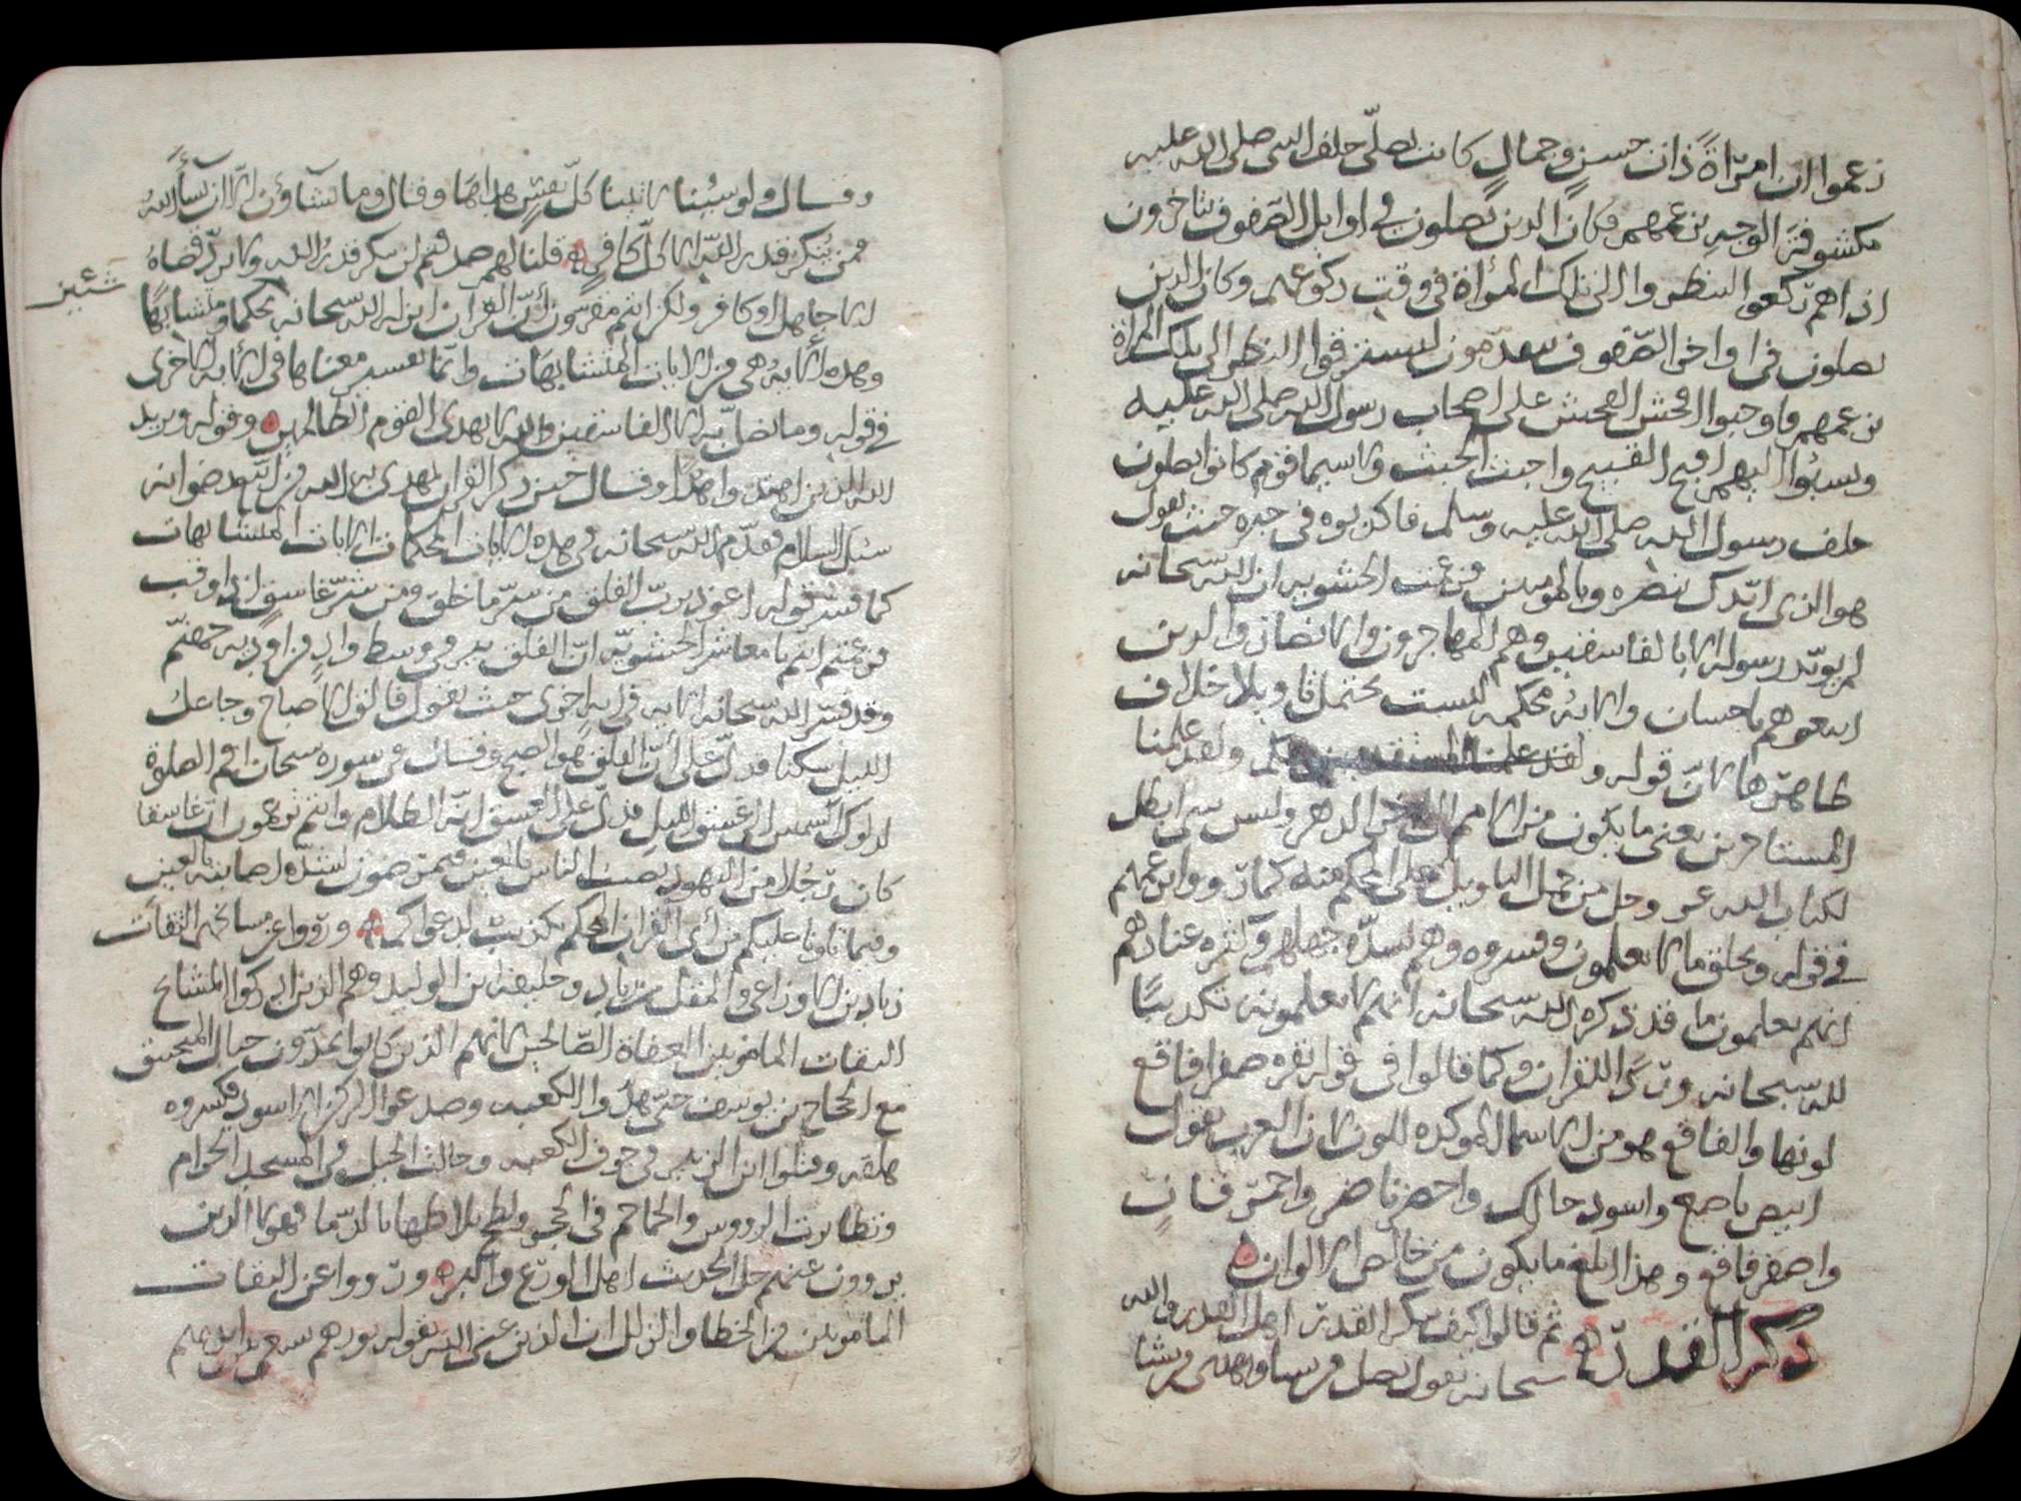 زعموا ان امرأة ذات حسن وجمال كانت تصلي خلف النبي صلى الله عليه
مكشوفة الوجه بزعمهم فكان الذين يصلون في اوايل الصفوف يتاخرون
اذا هم ركعوا لينظروا الى تلك المرأة في وقت ركوعهم وكان الذين
يصلون في اواخر الصفوف يتقدمون ليسترقوا النظر الى تلك المراة
بزعمهم فاوجبوا افحش الفحش على اصحاب رسول الله صلى الله عليه
ونسبوا اليهم اقبح القبيح واخبث الخبث ولا سيما قوم كانوا يصلون
خلف رسول الله صلى الله عليه وسلم فاكذبوه في خبره حيث يقول
هو الذي ايدك بنصره وبالمومنين فزعمت الحشويه ان الله سبحانه
لم يويد رسوله الا بالفاسقين وهم المهاجرون والانصار والذين
اتبعوهم باحسان والايه محكمه ليست تحتمل تاويلا خلاف
ظاهرها لان قوله ولقد علمنا المستقدمين منكم ولقد علمنا
المستاخرين يعني ما يكون من الامم الى اخر الدهر وليس شي ابطل
لكتاب الله عز وجل من حمل التاويل على المحكم منه كما رووا بزعمهم
في قوله ويخلق ما لا تعلمون وفسروه وهم لشدة جهلهم وكثرة عنادهم
انهم يعلمون ما قد ذكره الله سبحانه انهم لا يعلمونه تكذيبا
لله سبحانه وردا للقران وكما قالوا في قوله بقره صفرا فاقع
لونها والفاقع هو من الاسما الموكده للون لان العرب تقول
ابيض ناصع واسود حالك واخضر ناضر واحمر قان
واصفر فاقع وهذا ابلغ ما يكون من خالص الالوان
ذكر القدر ثم قالوا كيف ينكر القدر اهل القدر والله
سبحانه يقول يضل من يشا ويهدي من يشا
وقال ولو شئنا لاتينا كل نفس هداها وقال وما تشاؤن الا ان يشأ الله
فمن ينكر قدر الله الا كل كافر قلنا لهم صدقتم لن ينكر قدر الله ولا يرد قضاه
الا جاهل او كافر ولكن انتم مقرون أن القران انزله الله سبحانه محكما ومتشابها
شيئين
وهذه الايه هي من الايات المتشابهات وانما تفسير معناها في الايه الاخرى
في قوله وما يضل به الا الفاسقين والله لا يهدي القوم الظالمين وقوله ويزيد
الله الذين اهتدوا هدى وقال حين ذكر القران يهدي به الله من اتبع رضوانه
سبل السلام فقدم الله سبحانه في هذه الايات المحكمات الايات المتشابهات
كما فسر قوله اعوذ برب الفلق من شر ما خلق ومن شر غاسق اذا وقب
فزعمتم انتم يا معاشر الحشويه ان الفلق بير في وسط واد من اوديه جهنم
وقد فسر الله سبحانه الايه في ايه اخرى حيث يقول فالق الاصباح وجاعل
الليل سكنا فدل على أن الفلق هو الصبح وقال في سورة سبحان اقم الصلوة
لدلوك الشمس الى غسق الليل فدل على الغسق انه الظلام وانتم تزعمون ان غاسقا
كان رجلا من اليهود يصيب الناس بالعين فيمرضون لشده اصابته بالعين
وفيما تلونا عليكم من أي القران المحكم تكذيب لدعواكم ورووا عن مسانحهم الثقات
زياد بن الاوزاعي والمفضل بن زياد وخليفه بن الوليد وهم الذين ادركوا المشايخ
الثقات المامونين العفاة الصالحين لانهم الذين كانوا يمدون حبال المنجنيق
مع الحجاج بن يوسف حتى هدوا الكعبه وصدعوا الركن الاسود فكسروه
وقتلوا ابن الزبير في جوف الكعبه وجالت الخيل في المسجد الحرام
وتطايرت الرووس والجماجم في الحجر ولطخ بلاطها بالدما فهولا الذين
يروون عنهم جل الحديث اهل الورع والبر ورووا عن الثقات
المامونين من الخطا والزلل ان الذين عنى الله بقوله نورهم يسعى بين ايديهم